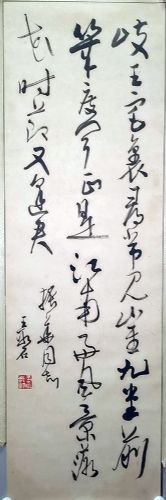 岐王宅裏尋常見崔九堂前
幾度聞正是江南好風景落
花時節又逢君
振華同志